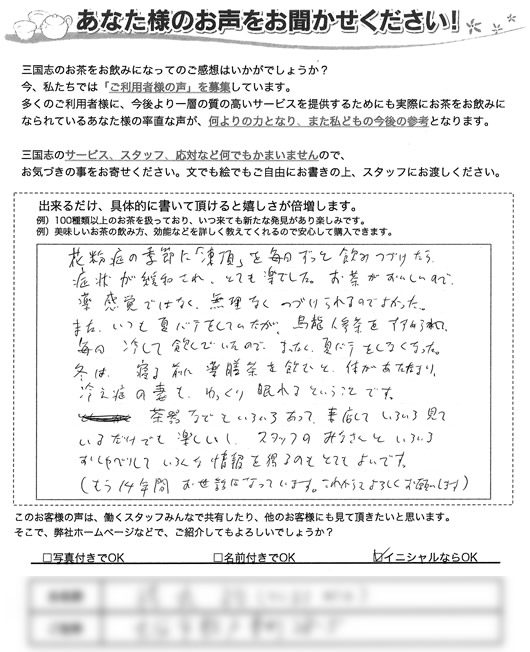 あなた様のお声をお聞かせください!
三国志のお茶をお飲みになってのご感想はいかがでしょうか?
今、私たちでは「ご利用者様の声」を募集しています。
多くのご利用者様に、今後より一層の質の高いサービスを提供するためにも実際にお茶をお飲みに
なられているあなた様の率直な声が、何よりの力となり、また私どもの今後の参考となります。
三国志のサービス、スタッフ、応対など何でもかまいませんので、
お気づきの事をお寄せください。文でも絵でもご自由にお書きの上、スタッフにお渡しください。
出来るだけ、具体的に書いて頂けると嬉しさが倍増します。
例）100種類以上のお茶を扱っており、いつ来ても新たな発見があり楽しみです。
例）美味しいお茶の飲み方、効能などを詳しく教えてくれるので安心して購入できます。
花粉症の季節に「凍頂」を毎日ずっと飲みつづけたら、
症状が緩和され、とても楽でした。お茶がおいしいので、
薬感覚ではなく、無理なくつづけられるのでよかった。
また、いつも夏バテをしてたが、烏龍人参茶をすすめられて
毎日 冷して飲んでいたので、まったく夏バテをしなくなった。
冬は、寝る前に薬膳茶を飲むと、体があたたまり、
冷え症の妻も、ゆっくり眠れるということです。
茶器などもいろいろあって、来店していろいろ見て
いるだけでも楽しいし、スタッフのみなさんといろいろ
おしゃべりしていろんな情報を得るのもとてもよいです。
(もう14年間お世話になっています。これからもよろしくお願いします)
このお客様の声は、働くスタッフみんなで共有したり、他のお客様にも見て頂きたいと思います。
そこで、弊社ホームページなどで、ご紹介してもよろしいでしょうか?
□写真付きでOK □名前付きでOK ☑イニシャルならOK